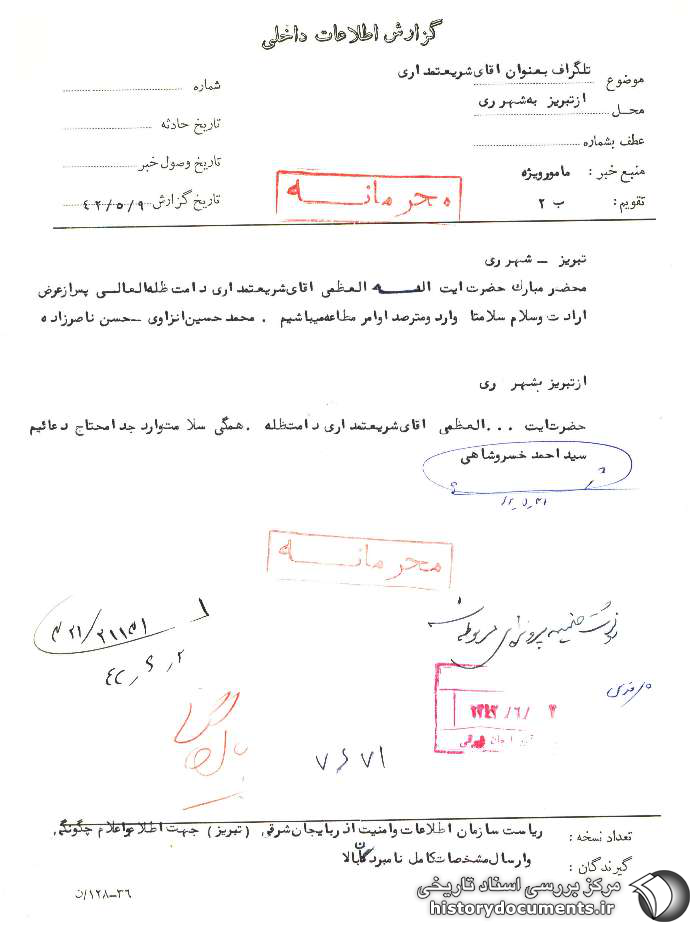 گزارش اطلاعات داخلی
موضوع تلگراف بعنوان اقای شریعتمداری
محل از تبریز به شهر ری
عطف بشماره
منبع خبر : مامور ویژه
تقویم : ب ۲
شماره
تاریخ حادثه
تاریخ وصول خبر
تاریخ گزارش ۴۲/۵/۹
محرمانه
تبریز - شهر ری
محضر مبارك حضرت ایت الله العظمی اقای شریعتمداری دامت ظله العالی پس از عرض
ارادت وسلام سلامتا وارد ومترصد اوامر مطاعه میباشیم . محمد حسین انزاوی - حسن ناصرزاده
از تبریز بشهر ری
حضرت ایت ... العظمی اقای شریعتمداری دامتظله . همگی سلامت وارد جدا محتاج دعائیم
سید احمد خسروشاهی
محرمانه
۷۶۷۱
تعداد نسخه :
گیرندگان :
ریاست سازمان اطلاعات وامنیت اذربایجان شرقی (تبریز) جهت اطلاع واعلام چگونگی
وارسال مشخصات کامل نامبردگان بالا
۳۶-۱۲۸/ن
مرکز بررسی اسناد تاریخی
historydocuments.ir